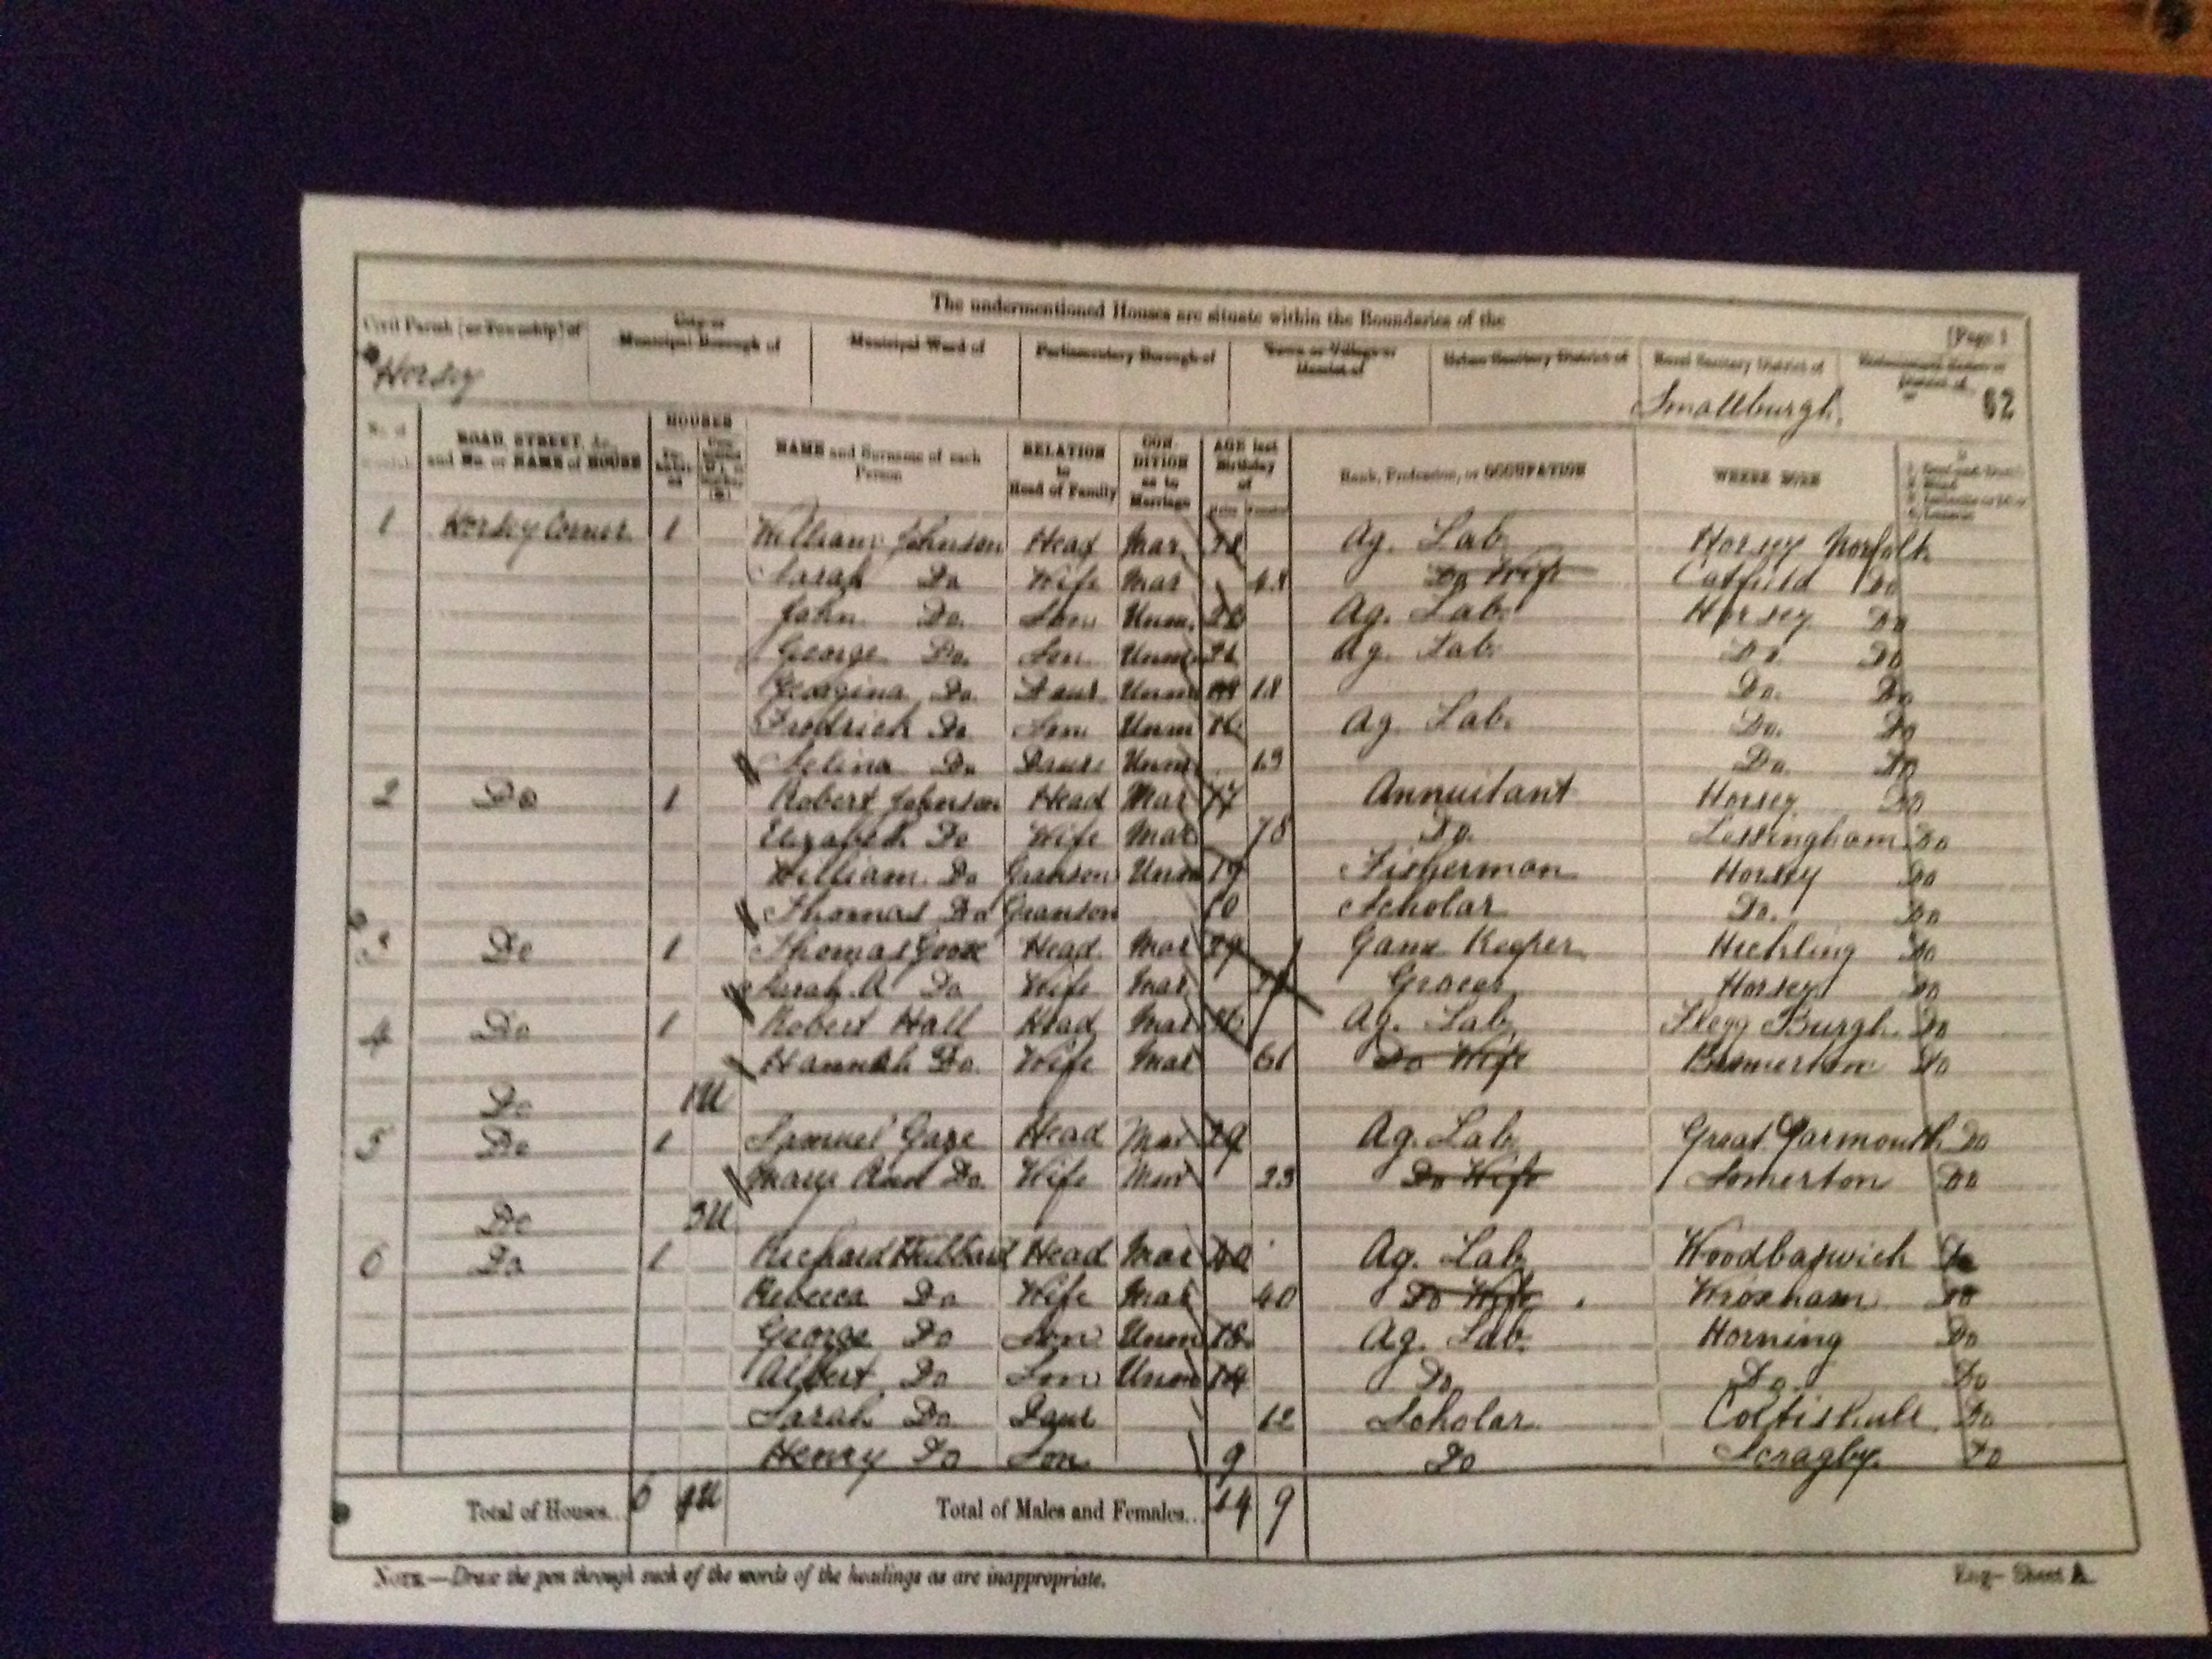 The undermentioned Houses are situate within the Boundaries of the
[Page 1
Civil Parish [or Township] of
City or Municipal Borough of
Municipal Ward of
Parliamentary Borough of
Town or Village or Hamlet of
Urban Sanitary District of
Rural Sanitary District of
Horsey
Smallburgh,
62
ROAD, STREET, &c., and No. or NAME of HOUSE
HOUSES
NAME and Surname of each Person
RELATION to Head of Family
CON-DITION as to Marriage
AGE last Birthday of
Rank, Profession, or OCCUPATION
WHERE BORN
1 Horsey Corner 1 William Johnson Head Mar Ag. Lab Horsey Norfolk
Sarah Do Wife Mar 48 Do Wife Catfield Do
John Do. Son Unm. Ag. Lab. Horsey Do
George Do. Son Unm 21 Ag. Lab. Do. Do
Georgina Do. Daur Unm 18 Do. Do
Fredrich Do Son Unm 16 Ag. Lab. Do. Do
Selina Do Daur Unm 13 Do. Do
2 Do 1 Robert Johnson Head Mar 77 Annuitant Horsey Do
Elizabeth Do Wife Mar 78 Do. Lessingham Do
William Do Granson Unm 19 Fisherman Horsey Do
Thomas Do Granson 10 Scholar Do. Do
3 Do 1 Thomas Goose Head Mar Game Keeper Hickling Do
Sarah A Do Wife Mar Grocer Horsey Do
4 Do 1 Robert Hall Head Mar Ag. Lab Flegg Burgh Do
Hannah Do. Wife Mar 61 Do Wife Do
Do 1U
5 Do 1 Samuel Gaze Head Mar 29 Ag. Lab Great Yarmouth Do
Mary Ann Do. Wife Mar 23 Do Wife Somerton Do
Do 3U
6 Do 1 Richard Hubbard Head Mar 40 Ag. Lab Woodbaswick Do
Rebecca Do Wife Mar 40 Do Wife Wroxham Do
George Do Son Unm 18 Ag. Lab. Horning Do
Albert Do Son Unm 14 Do Do. Do
Sarah Do Daur 12 Scholar Coltishall Do
Henry Do Son 9 Do Scragby. Do
Total of Houses... 6 4U Total of Males and Females... 14 9
NOTE.—Draw the pen through such of the words of the headings as are inappropriate.
Eng— Sheet A.